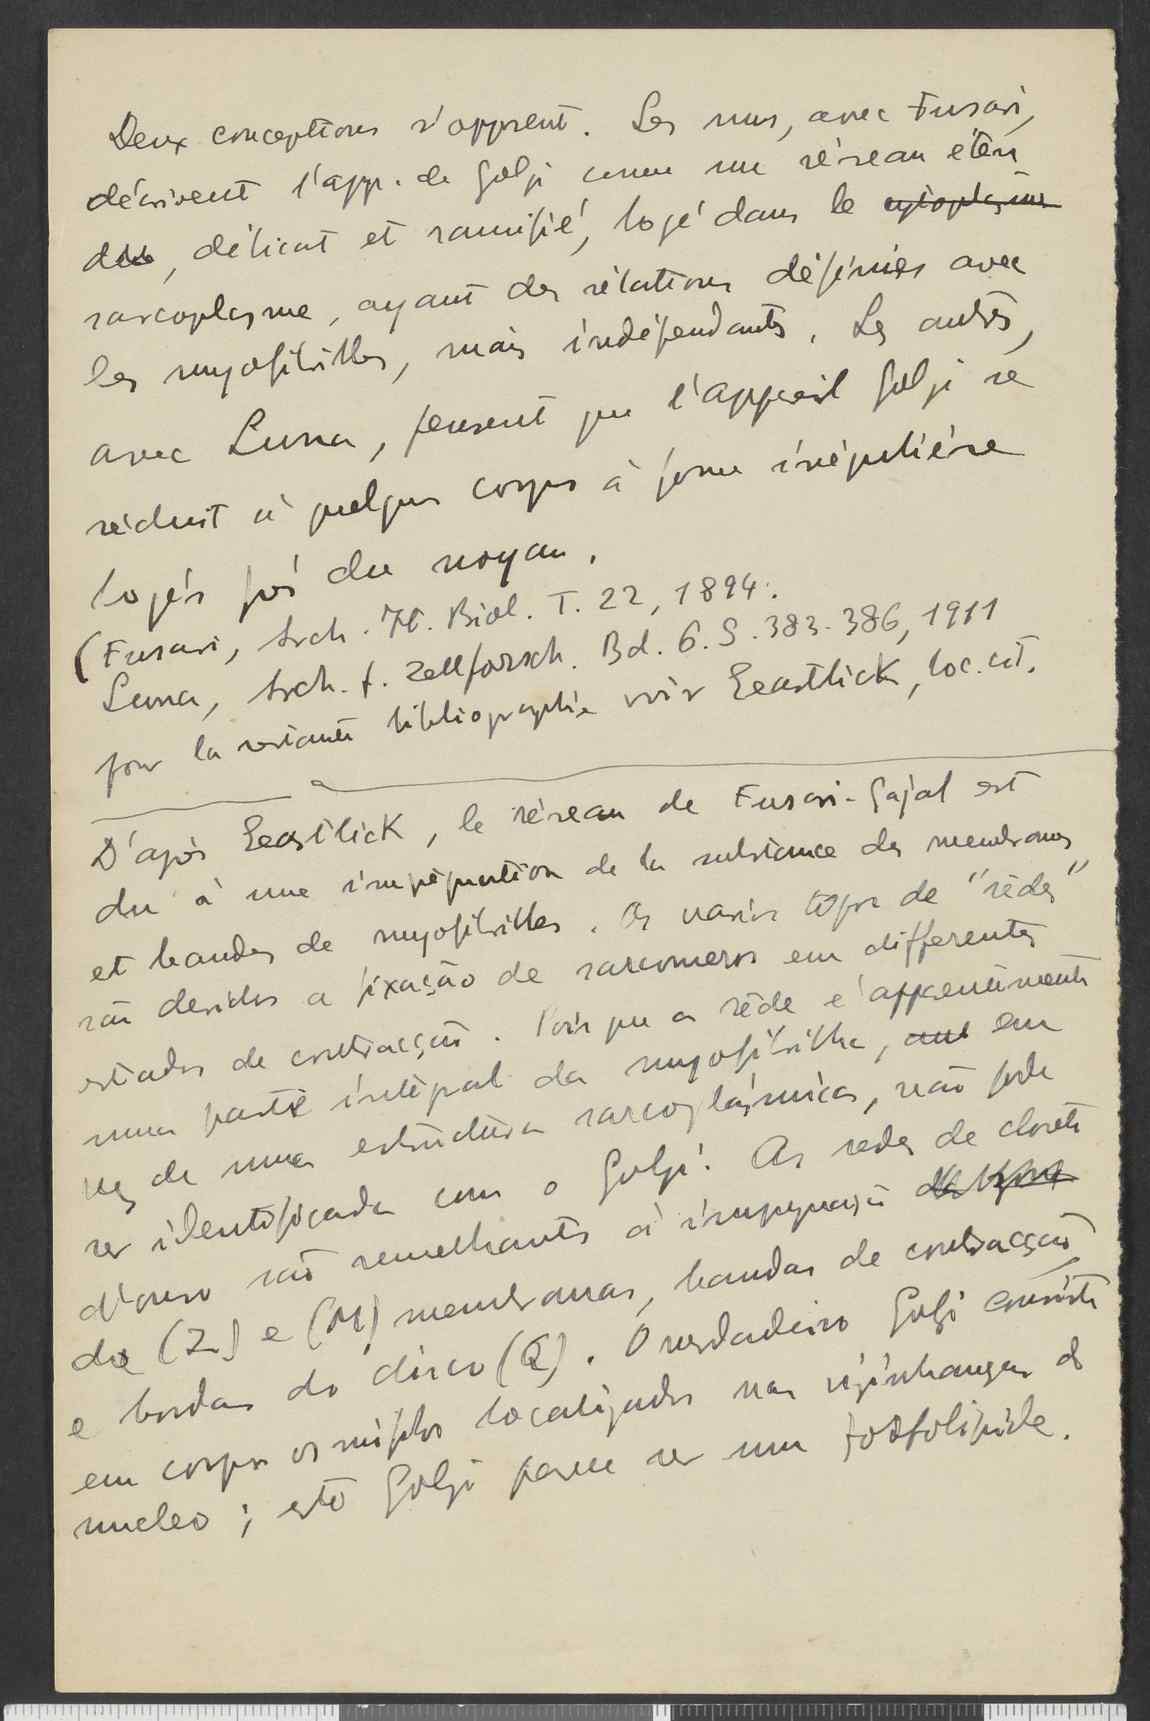 Deux conceptions s'opposent. Les uns, avec Fusari,
décrivent l'app. de Golgi comme un réseau éten
du, délicat et ramifié, logé dans le cytoplasme
sarcoplasme, ayant des rélations définies avec
les myofibrilles, mais indépendants. Les autres,
avec Luna, pensent que l'appareil Golgi se
réduit à quelques corps à forme irrégulière
logés près du noyau.
(Fusari, Arch. It. Biol. T. 22, 1894.
Luna, Arch. f. Zellforsch. Bd. 6. S. 383-386, 1911
pour la restante bibliographie voir Eeastlick, loc. cit.
D'après Eeastlick, le réseau de Fusari-Cajal est
du à une imprégnation de la substance des membranes
et bandes de myofibrilles. Os varios tipos de "rêdes"
são devidos a fixação de sarcomeros em differentes
estados de contracção. Pois que a rêde é apparentemente
uma parte integral da myofibrilha, em
vez de uma estructura sarcoplásmica, não pode
ser identificada com o Golgi. As redes de chloreto
d'ouro são semelhantes á impregnação
da (Z) e (M) membranas, bandas de contracção,
e bordas do disco (Q). O verdadeiro Golgi consiste
em corpos osmiofilos localizados nas vizinhanças do
nucleo; este Golgi parece ser um fosfolipide.